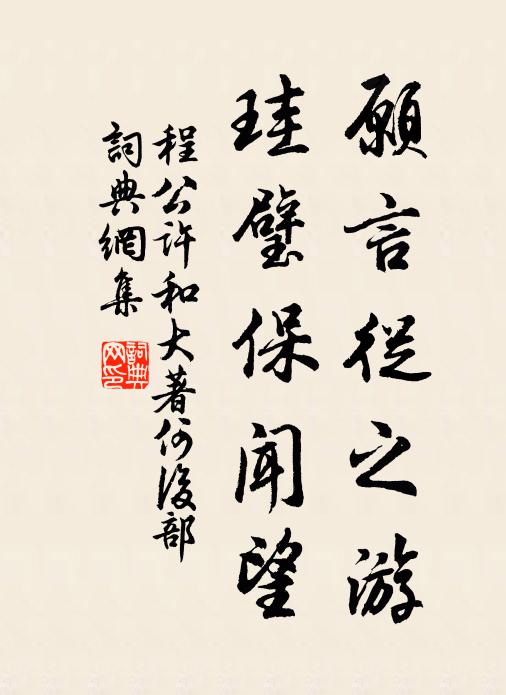 願言從之游
珪璧保聞望
程公許和大著何浚部
詞典網集
詞典網印